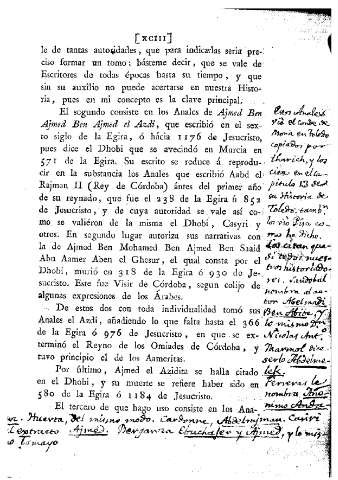 [XCIII]
le de tantas autoridades, que para indicarlas seria pre-
ciso formar un tomo: básteme decir, que se vale de
Escritores de todas épocas hasta su tiempo, y que
sin su auxilio no puede acertarse en nuestra Histo-
ria, pues en mi concepto es la clave principal.
El segundo consiste en los Anales de Ajmed Ben
Ajmed Ben Ajmed el Azdi, que escribió en el sex-
to siglo de la Egira, ó hácia 1176 de Jesucristo,
pues dice el Dhobi que se avecindó en Murcia en
571 de la Egira. Su escrito se reduce á reprodu-
cir en la substancia los Anales que escribió Aabd el
Rajman II (Rey de Córdoba) ántes del primer año
de su reynado, que fue el 238 de la Egira ó 852
de Jesucristo, y de cuya autoridad se vale así co-
mo se valiéron de la misma el Dhobi, Casyri y
otros. En segundo lugar autoriza sus narrativas con
la de Ajmed Ben Mohamed Ben Ajmed Ben Saaid
Abu Aamer Aben el Ghesur, el qual consta por el
Dhobi, murió en 318 de la Egira ó 930 de Je-
sucristo. Este fue Visir de Córdoba, segun colijo de
algunas expresiones de los Árabes.
De estos dos con toda individualidad tomó sus
Anales el Azdi, añadiendo lo que falta hasta el 366
de la Egira ó 976 de Jesucristo, en que se ex-
terminó el Reyno de los Omiades de Córdoba, y
travo principio el de los Aameritas.
Por último, Ajmed el Azidita se halla citado
en el Dhobi, y su muerte se refiere haber sido en
580 de la Egira ó 1184 de Jesucristo.
El tercero de que hago uso consiste en los Ana-
Anales
vió el conde de
Mora en Toledo
copiados por
y los
cita en el ca-
pitulo 13 de
su Historia de
Toledo
Pisa co-
mo he dicho.
Los citan qua-
si todos nues-
tros historiado-
res. Sandobal
nombra al au-
tor
y
lo mismo Dn.
Nicolas Ant.
Marmol
Ferreras le
nombra
Huerta, del mismo modo. Cardonne, Abdelrajman. Casiri
extracto Ajmed. Berganza y Ajmed, y lo mis-
o Tamayo